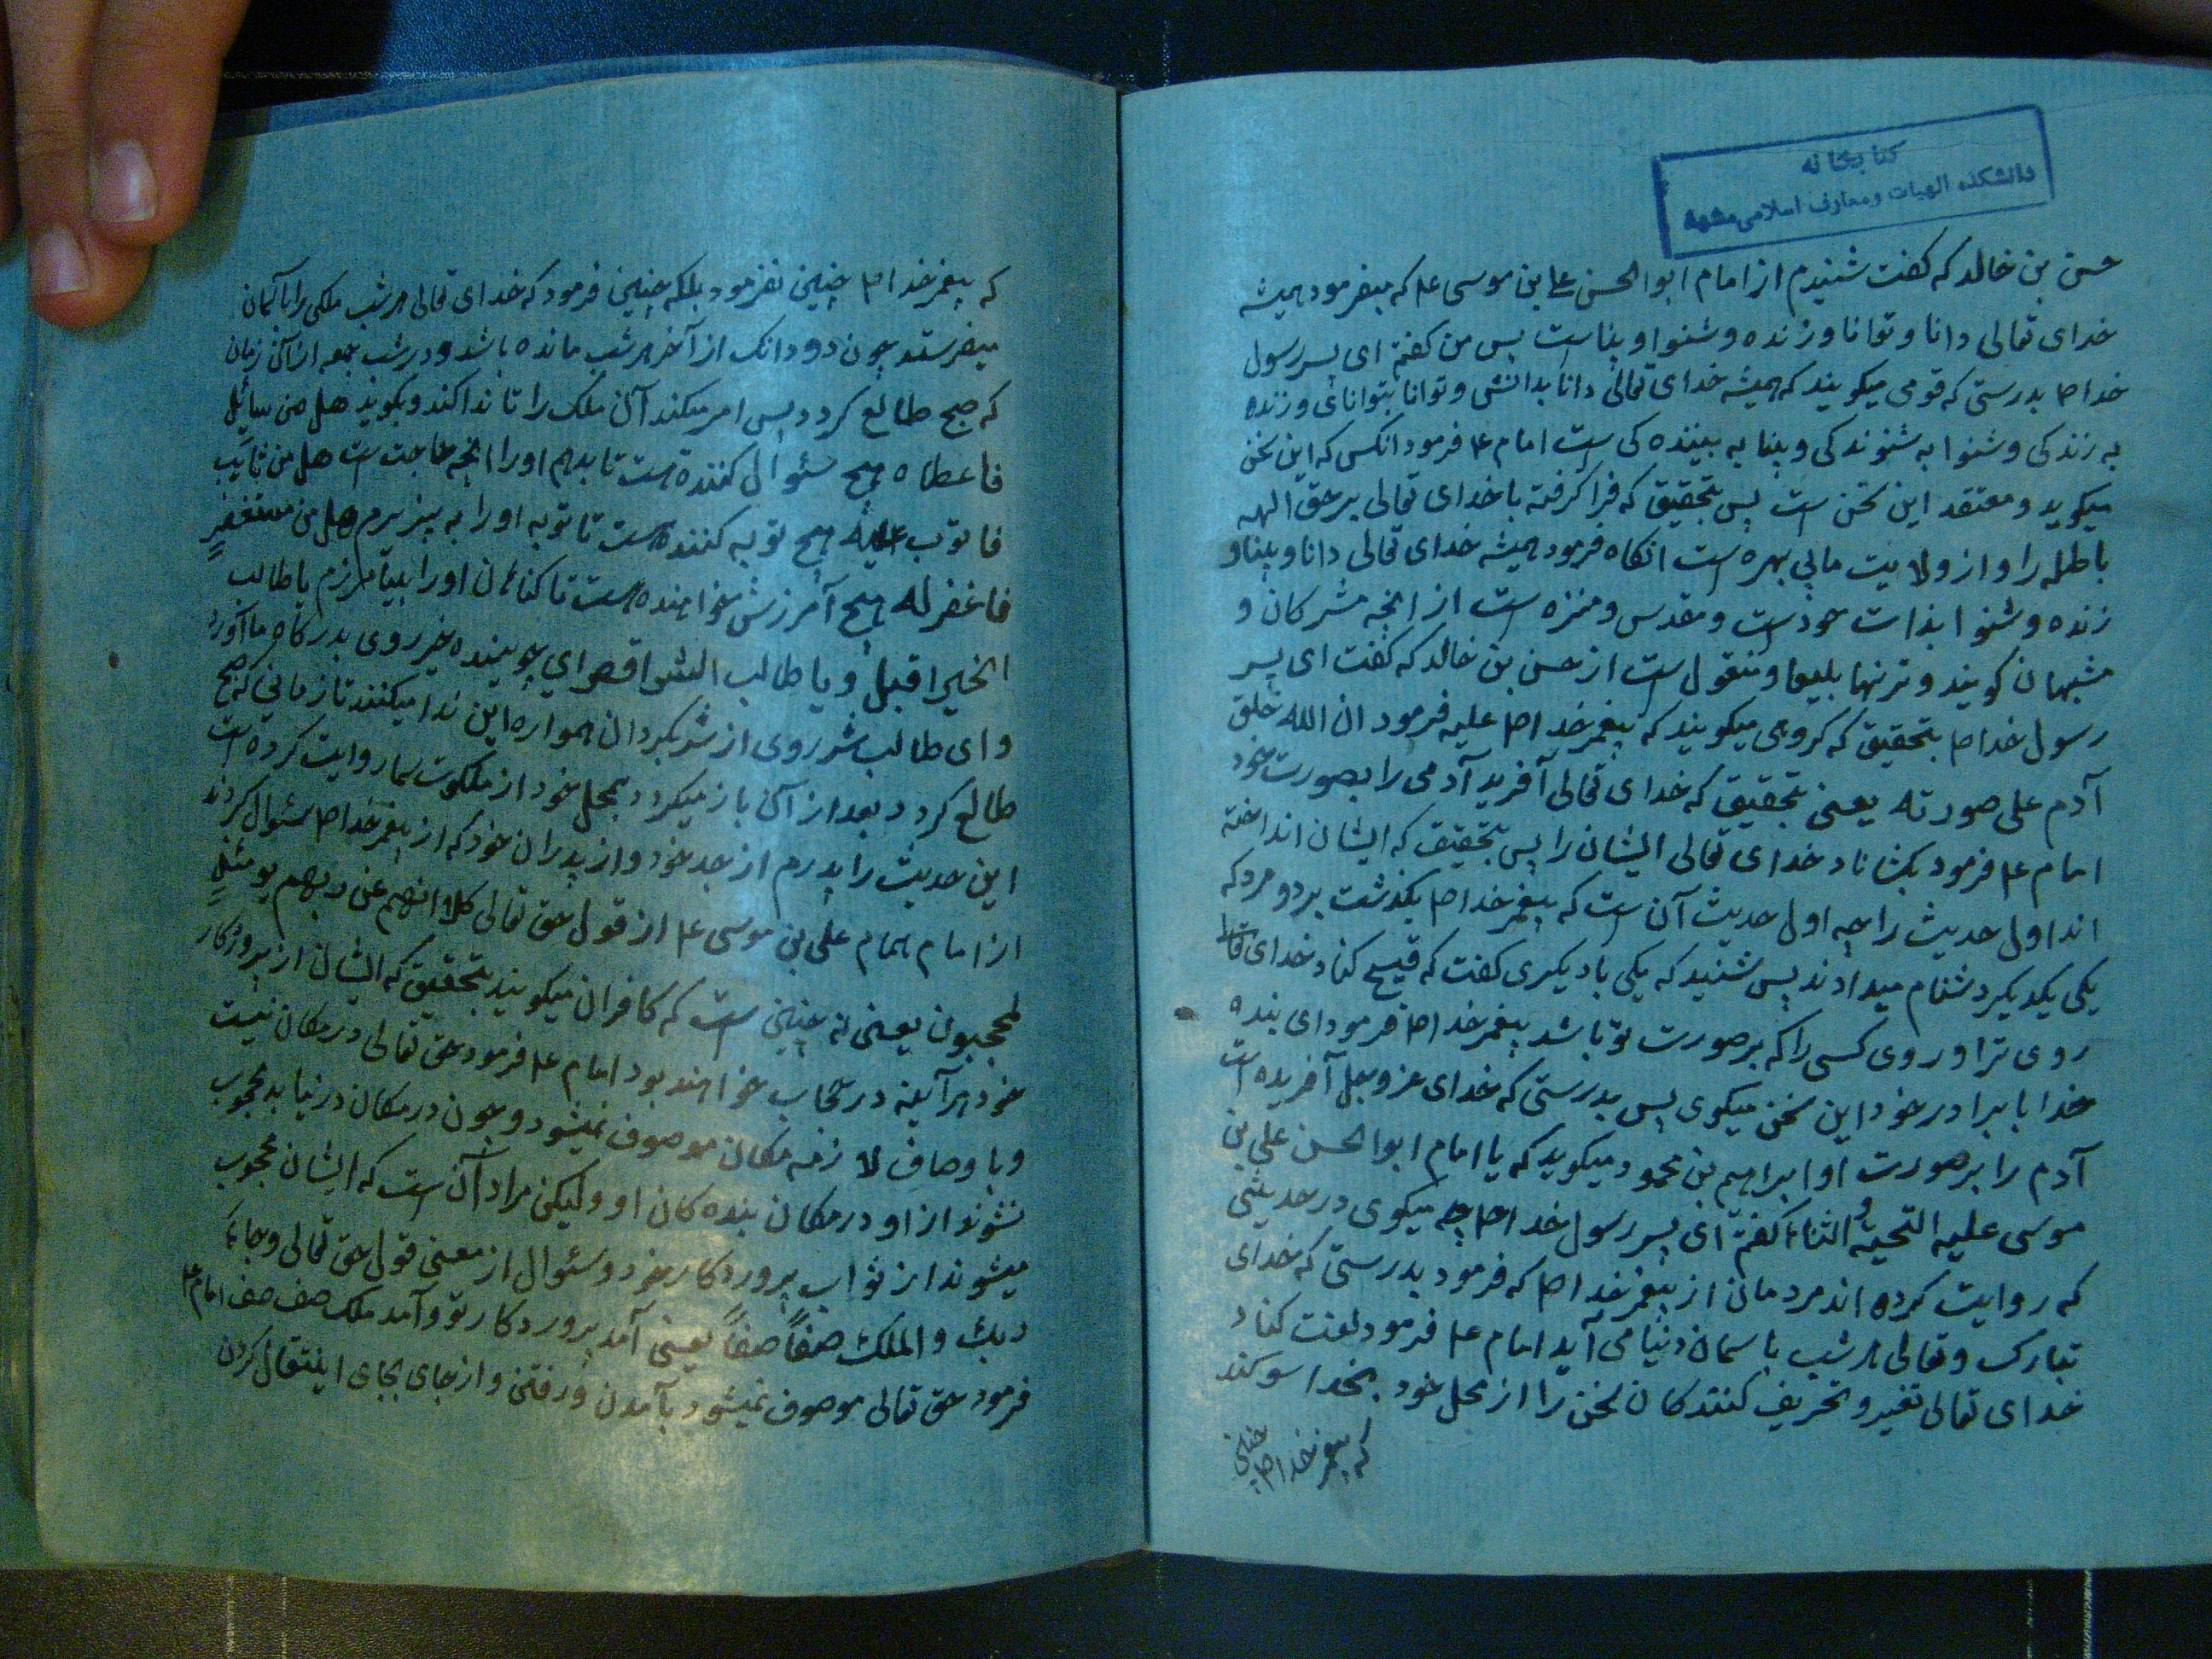 کتابخانه
دانشکده الهیات و معارف اسلامی مشهد
حسن بن خالد که کفت شنیدم از امام ابوالحسن علی بن موسی ع‍ا که میفرمود همیشه
خدای تعالی دانا و توانا و زنده و شنوا و بیناست پس من کفتم ای پسر رسول
خدا صا بدرستی که قومی میکویند که همیشه خدای تعالی دانا بدانش و توانا بتوانائی و زنده
به زندکی و شنوا به شنوندکی و بینا به بیننده کی است امام ع‍ا فرمود انکس که این سخن
میکوید و معتقد این سخن است پس بتحقیق که فرا کرفته با خدای تعالی بر حق الهه
باطله را و از ولایت ما بی بهره است انکاه فرمود همیشه خدای تعالی دانا و بینا و
زنده و شنوا بذات خودست و مقدس و منزه است از انچه مشرکان و
مشبهان کویند و ترنها بلیغا و منقول است از حسن بن خالد که کفت ای پسر
رسول خدا صا بتحقیق که کروهی میکویند که پیغمبر خدا صا علیه فرمود ان الله خلق
آدم علی صورته یعنی بتحقیق که خدای تعالی آفرید آدمی را بصورت خود
امام ع‍ا فرمود بکشاناد خدای تعالی ایشان را پس بتحقیق که ایشان انداخته
اند اول حدیث را چه اول حدیث آن است که پیغمبر خدا صا بکذشت بر دو مرد که
یکی یکدیکر دشنام میدادند پس شنید که یکی با دیکری کفت که قبیح کناد خدای تعالی
روی ترا و روی کسی را که بر صورت تو باشد پیغمبر خدا صا فرمود ای بنده
خدا با برادر خود این سخن میکوی پس بدرستی که خدای عز و جل آفریده است
آدم را بر صورت او ابراهیم بن محمود میکوید که یا امام ابوالحسن علی بن
موسی علیه التحیة و الثناء کفتم ای پسر رسول خدا صا چه میکوی در حدیثی
که روایت کرده اند مردمان از پیغمبر خدا صا که فرمود بدرستی که خدای
تبارک و تعالی هر شب با سمان دنیا می آید امام ع‍ا فرمود لعنت کناد
خدای تعالی تغییر و تحریف کنندکان سخن را از محل خود بخدا سوکند
که پیغمبر خدا صا چنین
که پیغمبر خدا صا چنین نفرمود بلکه چنین فرمود که خدای تعالی هر شب ملکی را باآسمان
میفرستد چون دو دانک از آخر هر شب مانده باشد و در شب جمعه ازان زمان
که صبح طالع کردد پس امر میکند آن ملک را تا ندا کند و بکوید هل من سائل
فاعطاه هیچ سئوال کننده هست تا بدهم او را انچه حاجت است هل من تائب
فاتوب علیه هیچ توبه کننده هست تا توبه او را به پزیرم هل من مستغفر
فاغفر له هیچ آمرزش خواهنده هست تا کناهان او را بیامرزم یا طالب
الخیر اقبل و یا طالب الشر اقصر ای جوینده خیر روی بدرکاه ما آورد
و ای طالب شر روی از شر بکردان همواره این ندا میکنند تا زمانی که صبح
طالع کردد بعد از آن باز میکردد بمحل خود از ملکوت سما روایت کرده است
این حدیث را پدرم از جد خود و از پدران خود که از پیغمبر خدا صا سئوال کردند
از امام همام علی بن موسی ع‍ا از قول حق تعالی کلا انهم عن ربهم یومئذ
لمحجوبون یعنی نه چنین است که کافران میکویند بتحقیق که ایشان از پروردکار
خود هرآینه در حجاب خواهند بود امام ع‍ا فرمود حق تعالی در مکان نیست
و باوصاف لازمه مکان موصوف نمیشود و چون در مکان در نیاید محجوب
نشوند از او در مکان بنده کان او ولیکن مراد آن است که ایشان محجوب
میشوند از ثواب پروردکار خود و سئوال از معنی قول حق تعالی و جاء
ربک و الملک صفا صفا یعنی آمد پروردکار تو و آمد ملک صف صف امام ع‍ا
فرمود حق تعالی موصوف نمیشود بآمدن و رفتن و از جای بجای اینتقال کردن